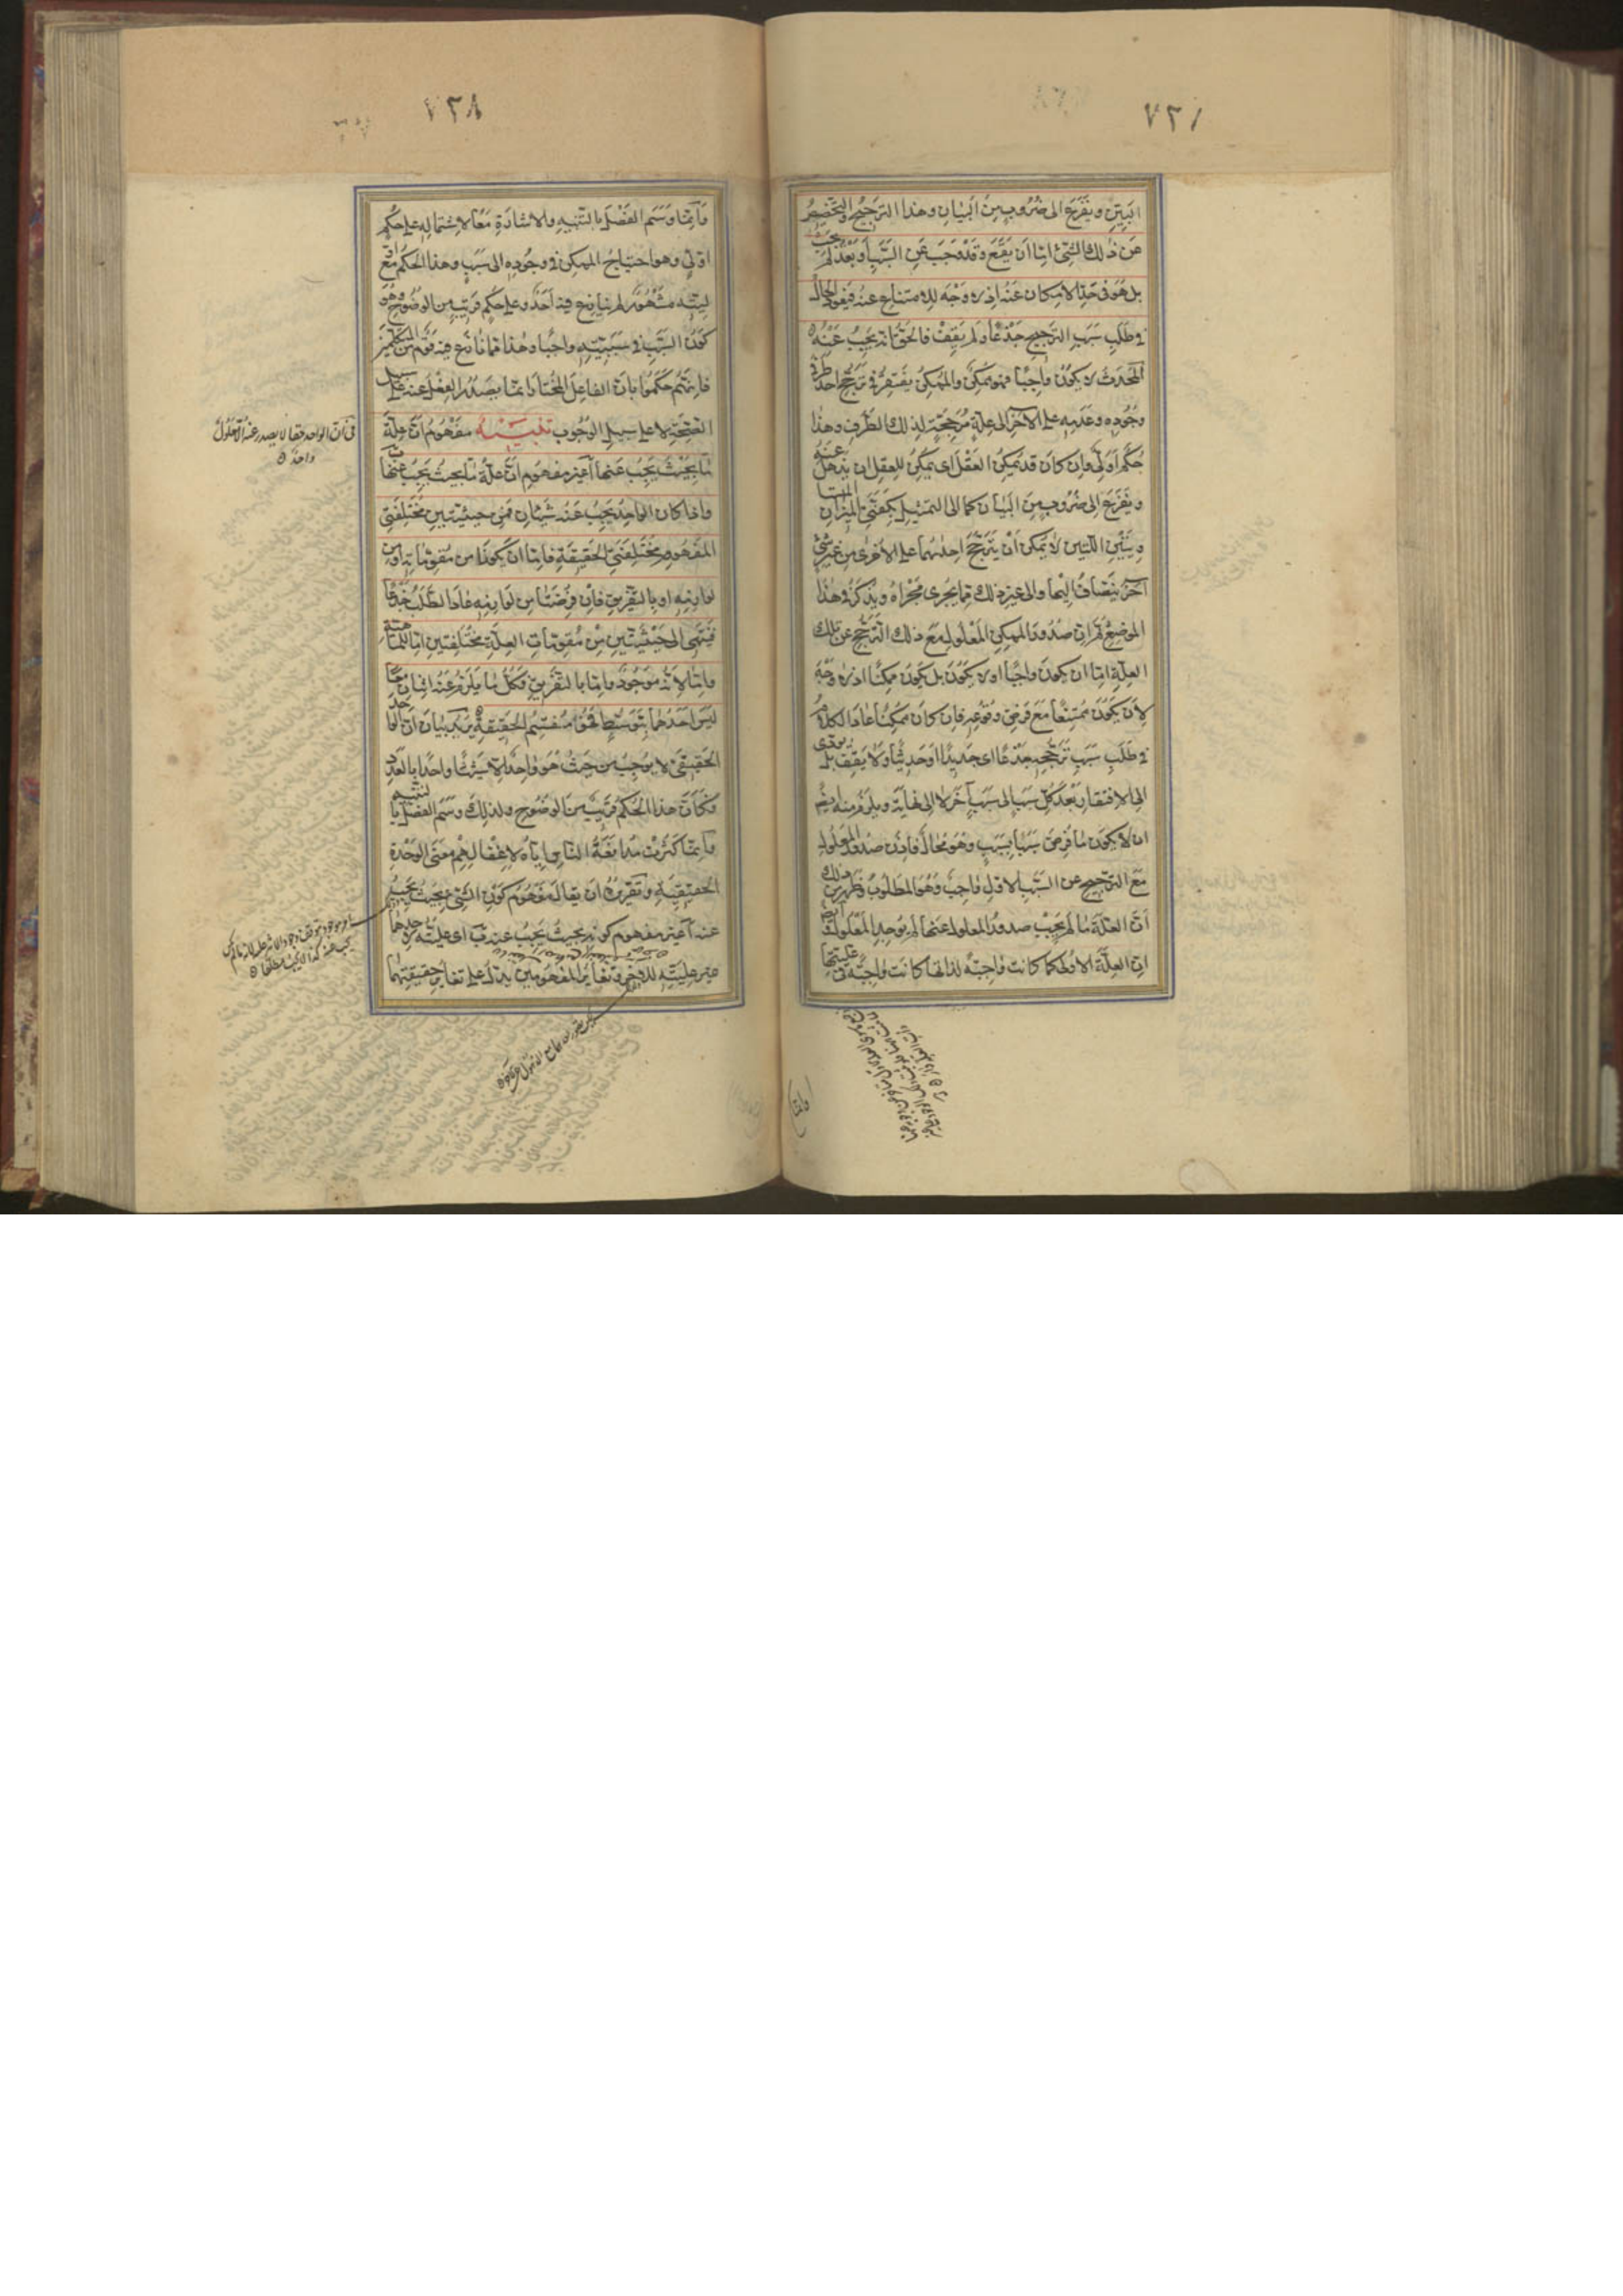 ٧٣٧
البين ويفزع الى ضروب من البيان وهذا الترجيح والتخصيص
عن ذلك الشئ اما ان يقع وقد وجب عن السبب او بعد لم يجب
بل هو فى حد الامكان عنه اذ لا وجه للامتناع عنه فيعود الحال
فى طلب سبب الترجيح جذعا ولم يقف فالحق انه يجب عنه
المحدث لا يكون واجبا فهو ممكن والممكن يفتقر فى ترجح احد طرفى
وجوده وعدمه على الاخر الى علة مرجحة لذلك الطرف وهذا
حكم اولى وان كان قد يمكن العقل اى يمكن للعقل ان يذهل عنه
ويفزع الى ضروب من البيان كما الى التمثيل بكفتى الميزان المتسا
ويتين اللتين لا يمكن ان يترجح احدىهما على الاخرى من غير شئ
آخر ينضاف اليها والى غير ذلك مما يجرى مجراه ويذكر فى هذا
الموضع ثم ان صدور الممكن المعلول مع ذلك الترجح عن تلك
العلة اما ان يكون واجبا او لا يكون بل يكون ممكنا اذ لا وجه
لان يكون ممتنعا مع فرض وقوعه فان كان ممكنا عاد الكلام
فى طلب سبب ترجحه جذعا اى جديدا او حديثا ولا يقف بل يودى
الى الافتقار بعد كل سبب الى سبب آخر لا الى نهاية ويلزم منه ايضا
ان لا يكون ما فرض سببا بسبب وهو محال فاذن صدور المعلول
مع الترجيح عن السبب الاول واجب وهو المطلوب وظهر من ذلك
ان العلة ما لم يجب صدور المعلول عنها لم يوجد المعلول وايضا
ان العلة الاولى كما كانت واجبة لذاتها كانت واجبة فى عليتها
وانما
٧٣٨
وانما وسم الفصل بالتنبيه والاشارة معا لاشتماله على حكم
اولى وهو احتياج الممكن فى وجوده الى سبب وهذا الحكم مع او
ليته مشهور لم ينازع فيه احد وعلى حكم قريب من الوضوح وهو
كون السبب فى سببيته واجبا وهذا مما نازع فيه قوم من المتكلمين
فانهم حكموا بان الفاعل المختار انما يصدر الفعل عنه على سبيل
الصحة لا على سبيل الوجوب تنبيه مفهوم ان علة
ما بحيث يجب عنها آ غير مفهوم ان علة ما بحيث يجب عنها ب
واذا كان الواحد يجب عنه شيئان فمن حيثيتين مختلفتى
المفهوم مختلفتى الحقيقة فاما ان يكونا من مقوماته او من
لوازمه او بالتفريق فان فرضتا من لوازمه عاد الطلب جذعا
فينتهى الى حيثيتين من مقومات العلة مختلفتين اما للماهية
واما لانه موجود واما بالتفريق فكل ما يلزم عنه اثنان معا
ليس احدهما بتوسط فهو منقسم الحقيقة يريد بيان ان الواحد
الحقيقى لا يوجب من حيث هو واحد الا شيئا واحدا بالعدد
وكان هذا الحكم قريب من الوضوح ولذلك وسم الفصل بالتنبيه
وانما كثرت مدافعة الناس اياه لاغفالهم معنى الوحدة
الحقيقية وتقريره ان يقال مفهوم كون الشئ بحيث يجب
عنه آ غير مفهوم كونه بحيث يجب عنه ب اى عليته لاحدهما
غير عليته للاخر وتغاير المفهومين يدل على تغاير حقيقتهما
فى ان الواحد حقا لا يصدر عنه الا معلول
واحد